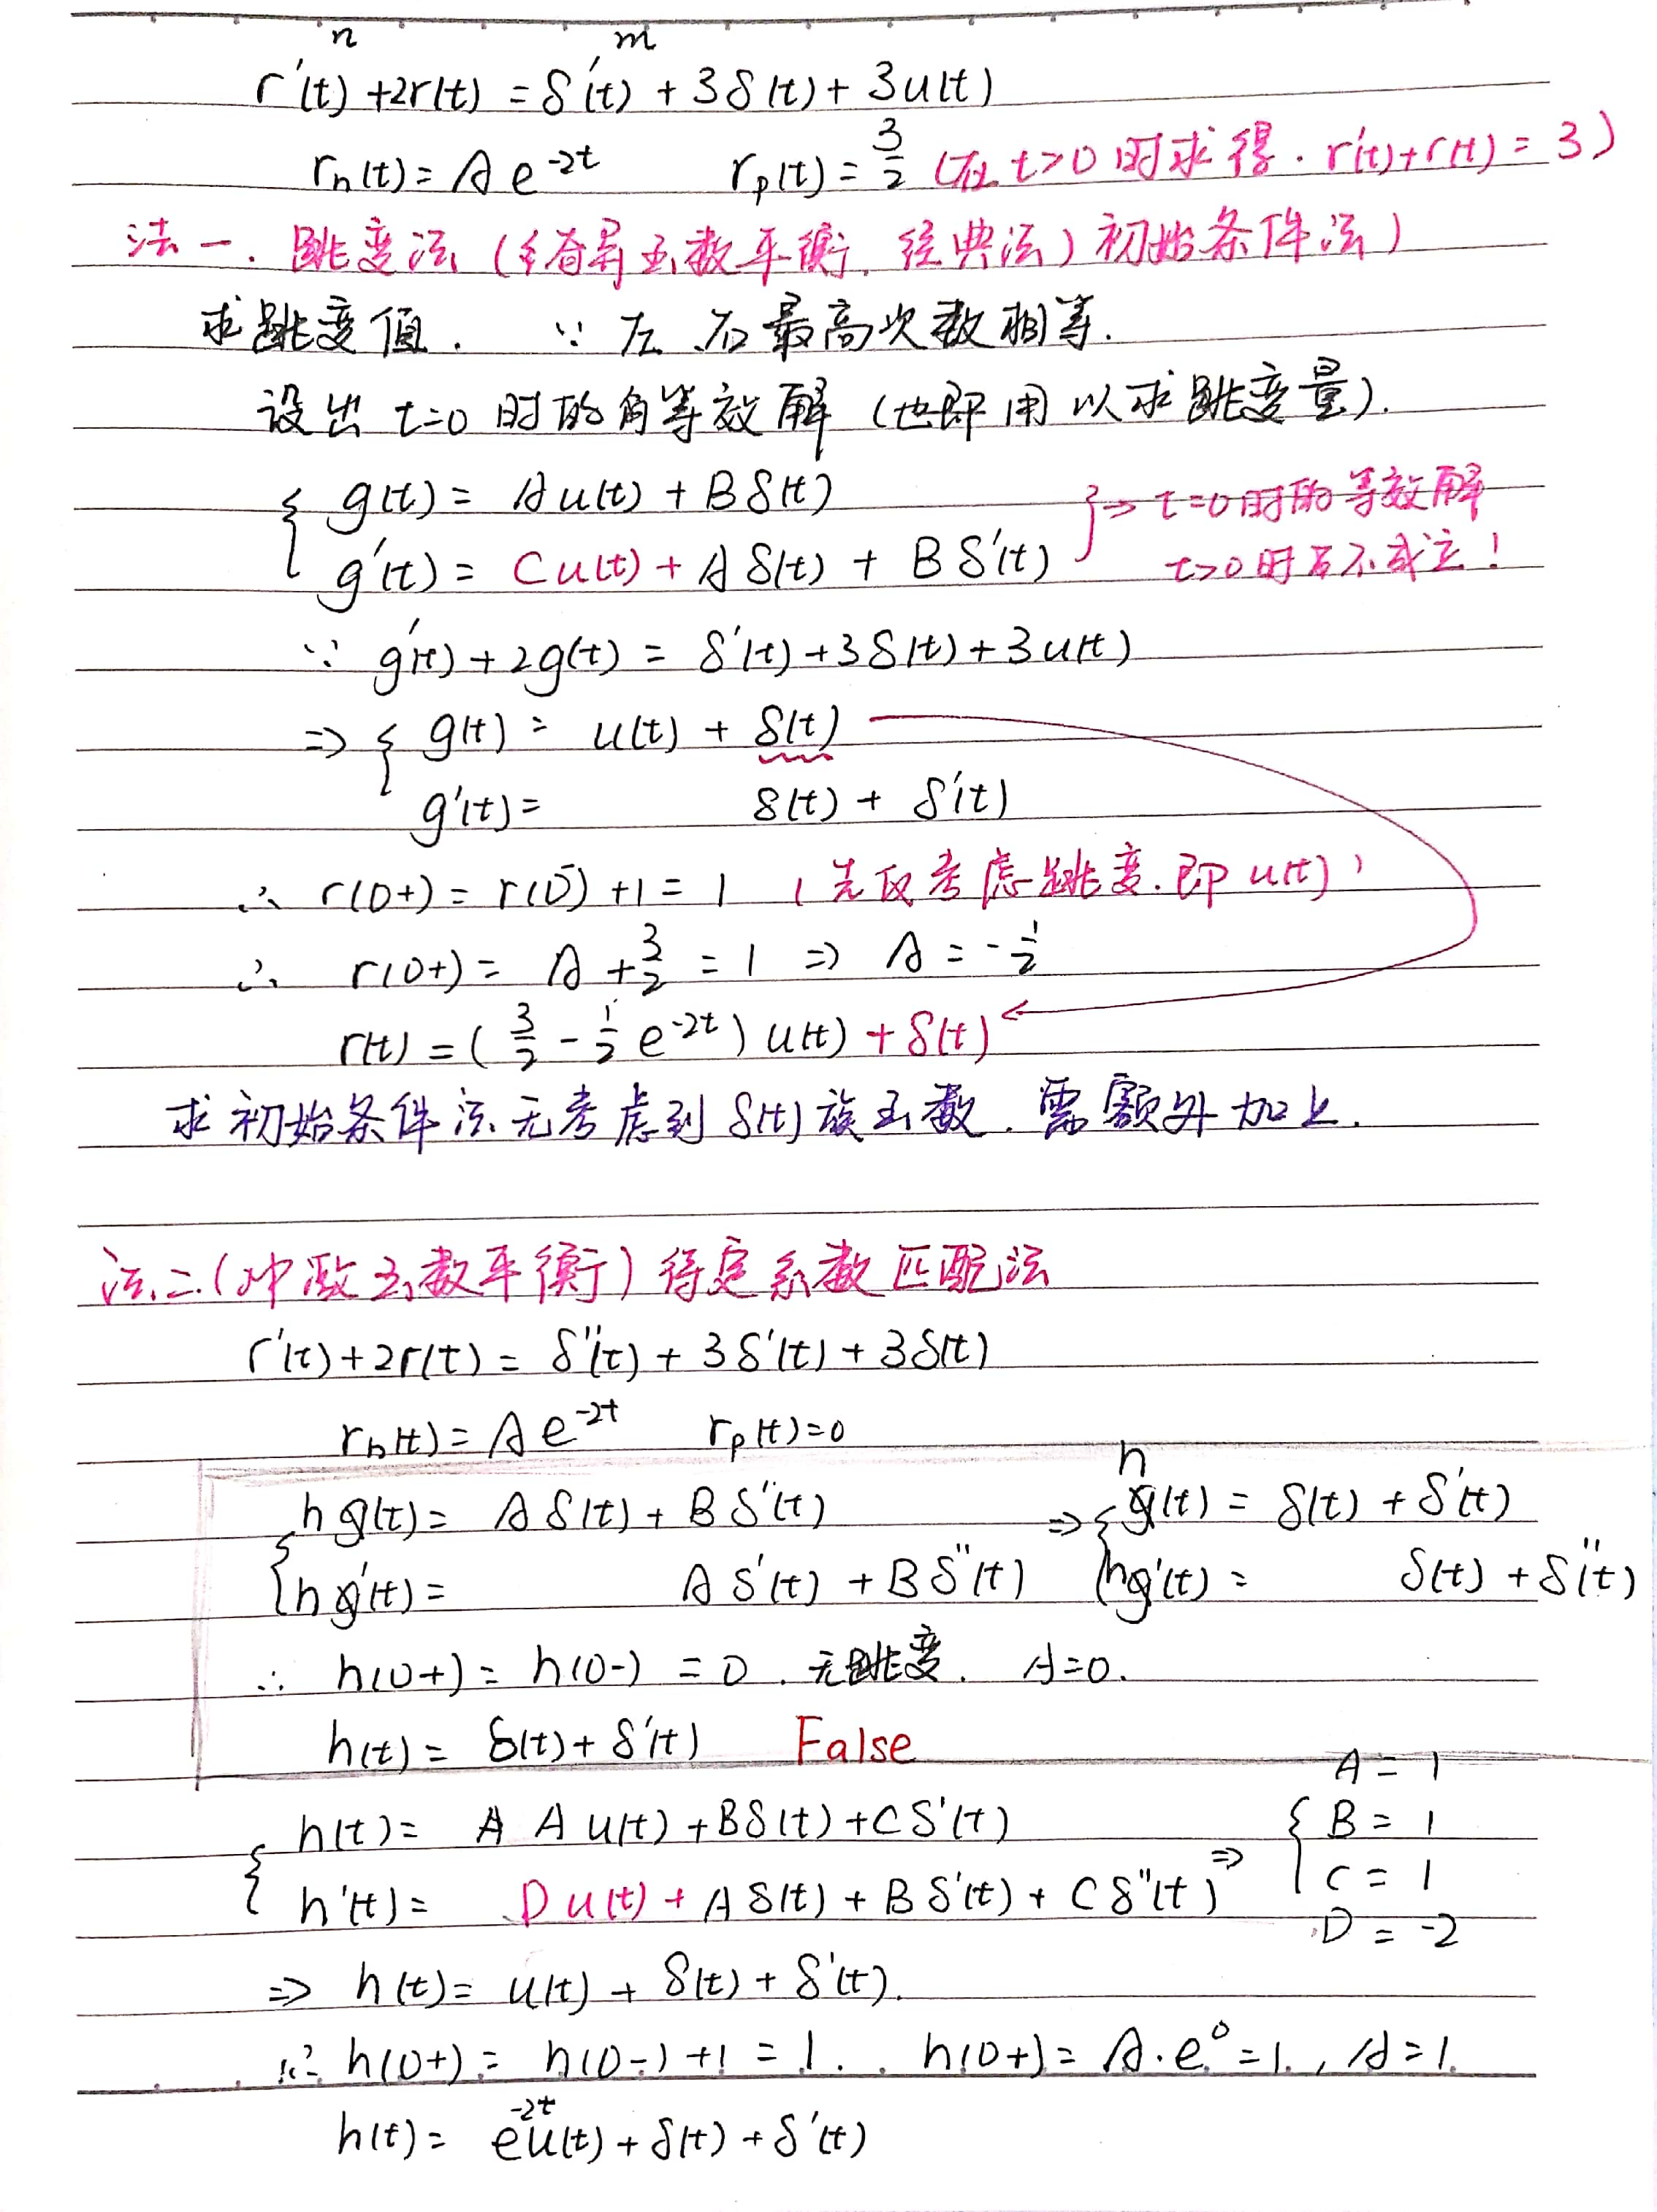 n m
r'(t) + 2r(t) = δ'(t) + 3δ(t) + 3u(t)
rh(t) = A e^-2t rp(t) = 3/2 (在 t>0 时求得. r'(t)+r(t) = 3)
法一. 跳变法 (奇异函数平衡. 经典法) 初始条件法)
求跳变值. ∵ 左 右最高次数相等.
设出 t=0 时的等效解 (也即用以求跳变量).
{ g(t) = Au(t) + Bδ(t)
g'(t) = Cu(t) + Aδ(t) + Bδ'(t) } ⇒ t=0时的等效解
t>0时不成立!
∵ g'(t) + 2g(t) = δ'(t) + 3δ(t) + 3u(t)
⇒ { g(t) = u(t) + δ(t)
g'(t) = δ(t) + δ'(t)
∴ r(0+) = r(0-) + 1 = 1 (先仅考虑跳变. 即 u(t))
∴ r(0+) = A + 3/2 = 1 ⇒ A = -1/2
r(t) = (3/2 - 1/2 e^-2t) u(t) + δ(t)
求初始条件法无考虑到 δ(t) 族函数. 需额外加上.
法二. (冲激函数平衡) 待定系数匹配法
r'(t) + 2r(t) = δ''(t) + 3δ'(t) + 3δ(t)
rh(t) = A e^-2t rp(t) = 0
{ h g(t) = Aδ(t) + Bδ'(t) ⇒ { h g(t) = δ(t) + δ'(t)
h g'(t) = Aδ'(t) + Bδ''(t) h g'(t) = δ(t) + δ''(t)
∴ h(0+) = h(0-) = 0. 无跳变. A=0.
h(t) = δ(t) + δ'(t) False
{ h(t) = A A u(t) + Bδ(t) + Cδ'(t)
h'(t) = D u(t) + Aδ(t) + Bδ'(t) + Cδ''(t) ⇒
{ A = 1
B = 1
C = 1
D = -2
⇒ h(t) = u(t) + δ(t) + δ'(t).
∴ h(0+) = h(0-) + 1 = 1. h(0+) = A·e^0 = 1., A=1.
h(t) = e^-2t u(t) + δ(t) + δ'(t)